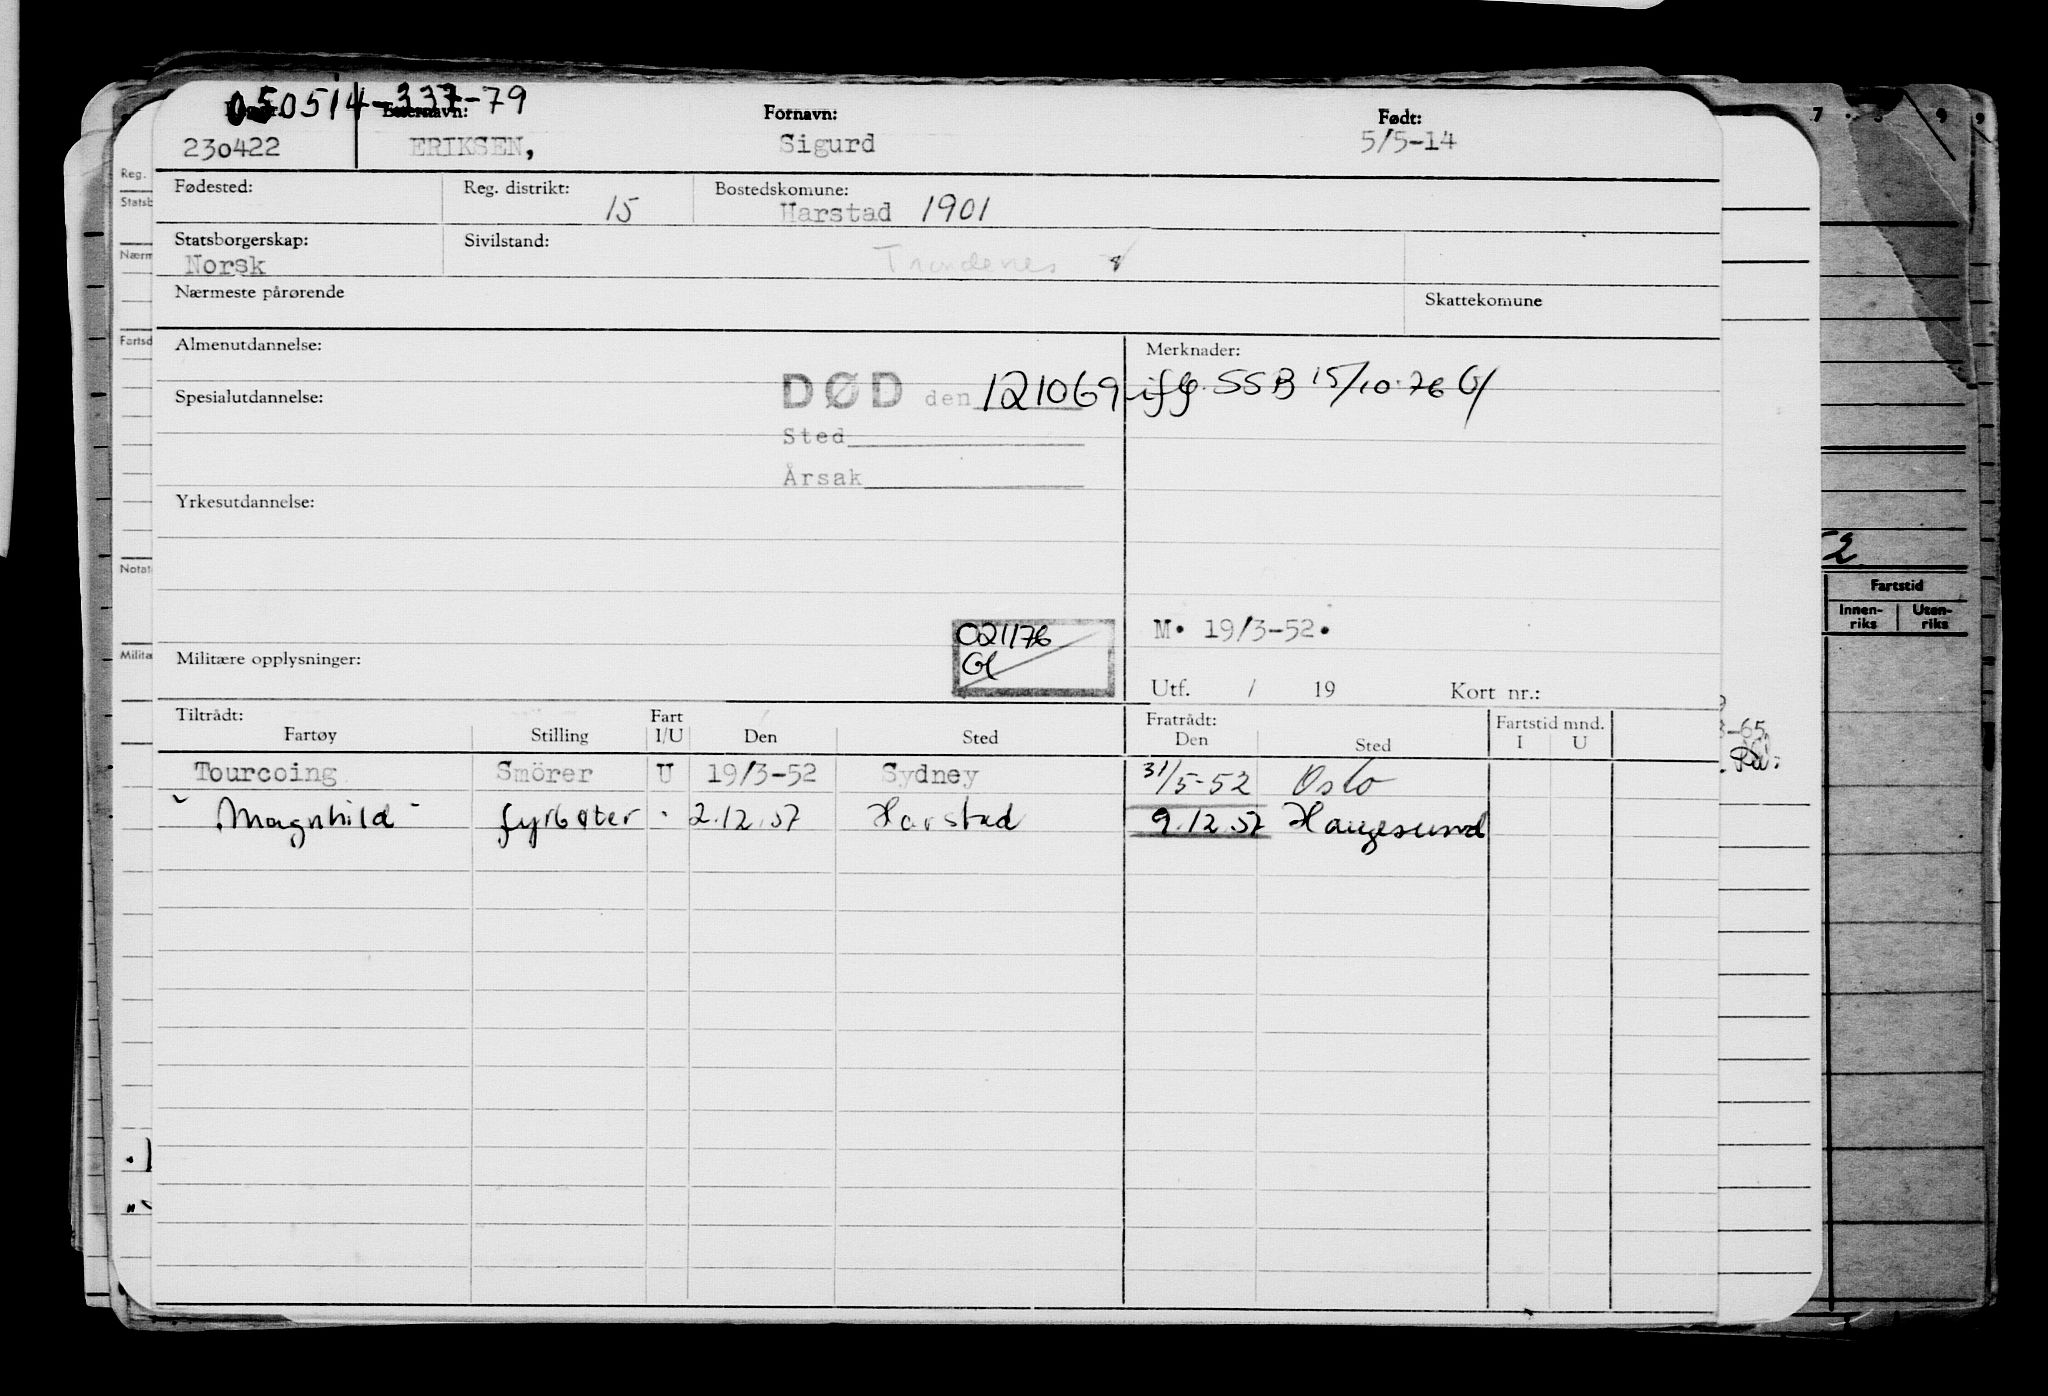 050514-337-79
Etternavn: Fornavn: Født:
230422 ERIKSEN, Sigurd 5/5-14
Fødested: Reg. distrikt: 15 Bostedskomune: Harstad 1901
Statsborgerskap: Norsk Sivilstand: Trondenes
Nærmeste pårørende Skattekomune
Almenutdannelse: Merknader:
Spesialutdannelse: DØD den 121069 iflg. SSB 15/10-76 Gl
Sted
Årsak
Yrkesutdannelse:
021176
Gl
M. 19/3-52.
Militære opplysninger: Utf. / 19 Kort nr.:
Tiltrådt: Fart Fratrådt: Fartstid mnd.
Fartøy Stilling I/U Den Sted Den Sted I U
Tourcoing Smörer U 19/3-52 Sydney 31/5-52 Oslo
"Magnhild" fyrbøter " 2.12.57 Harstad 9.12.57 Haugesund
Reg.
Statsb
Nærm
Fartsd
Notat
Milita
7 8 9 9
52
Fartstid
Innen-
riks
Uten-
riks
3-65